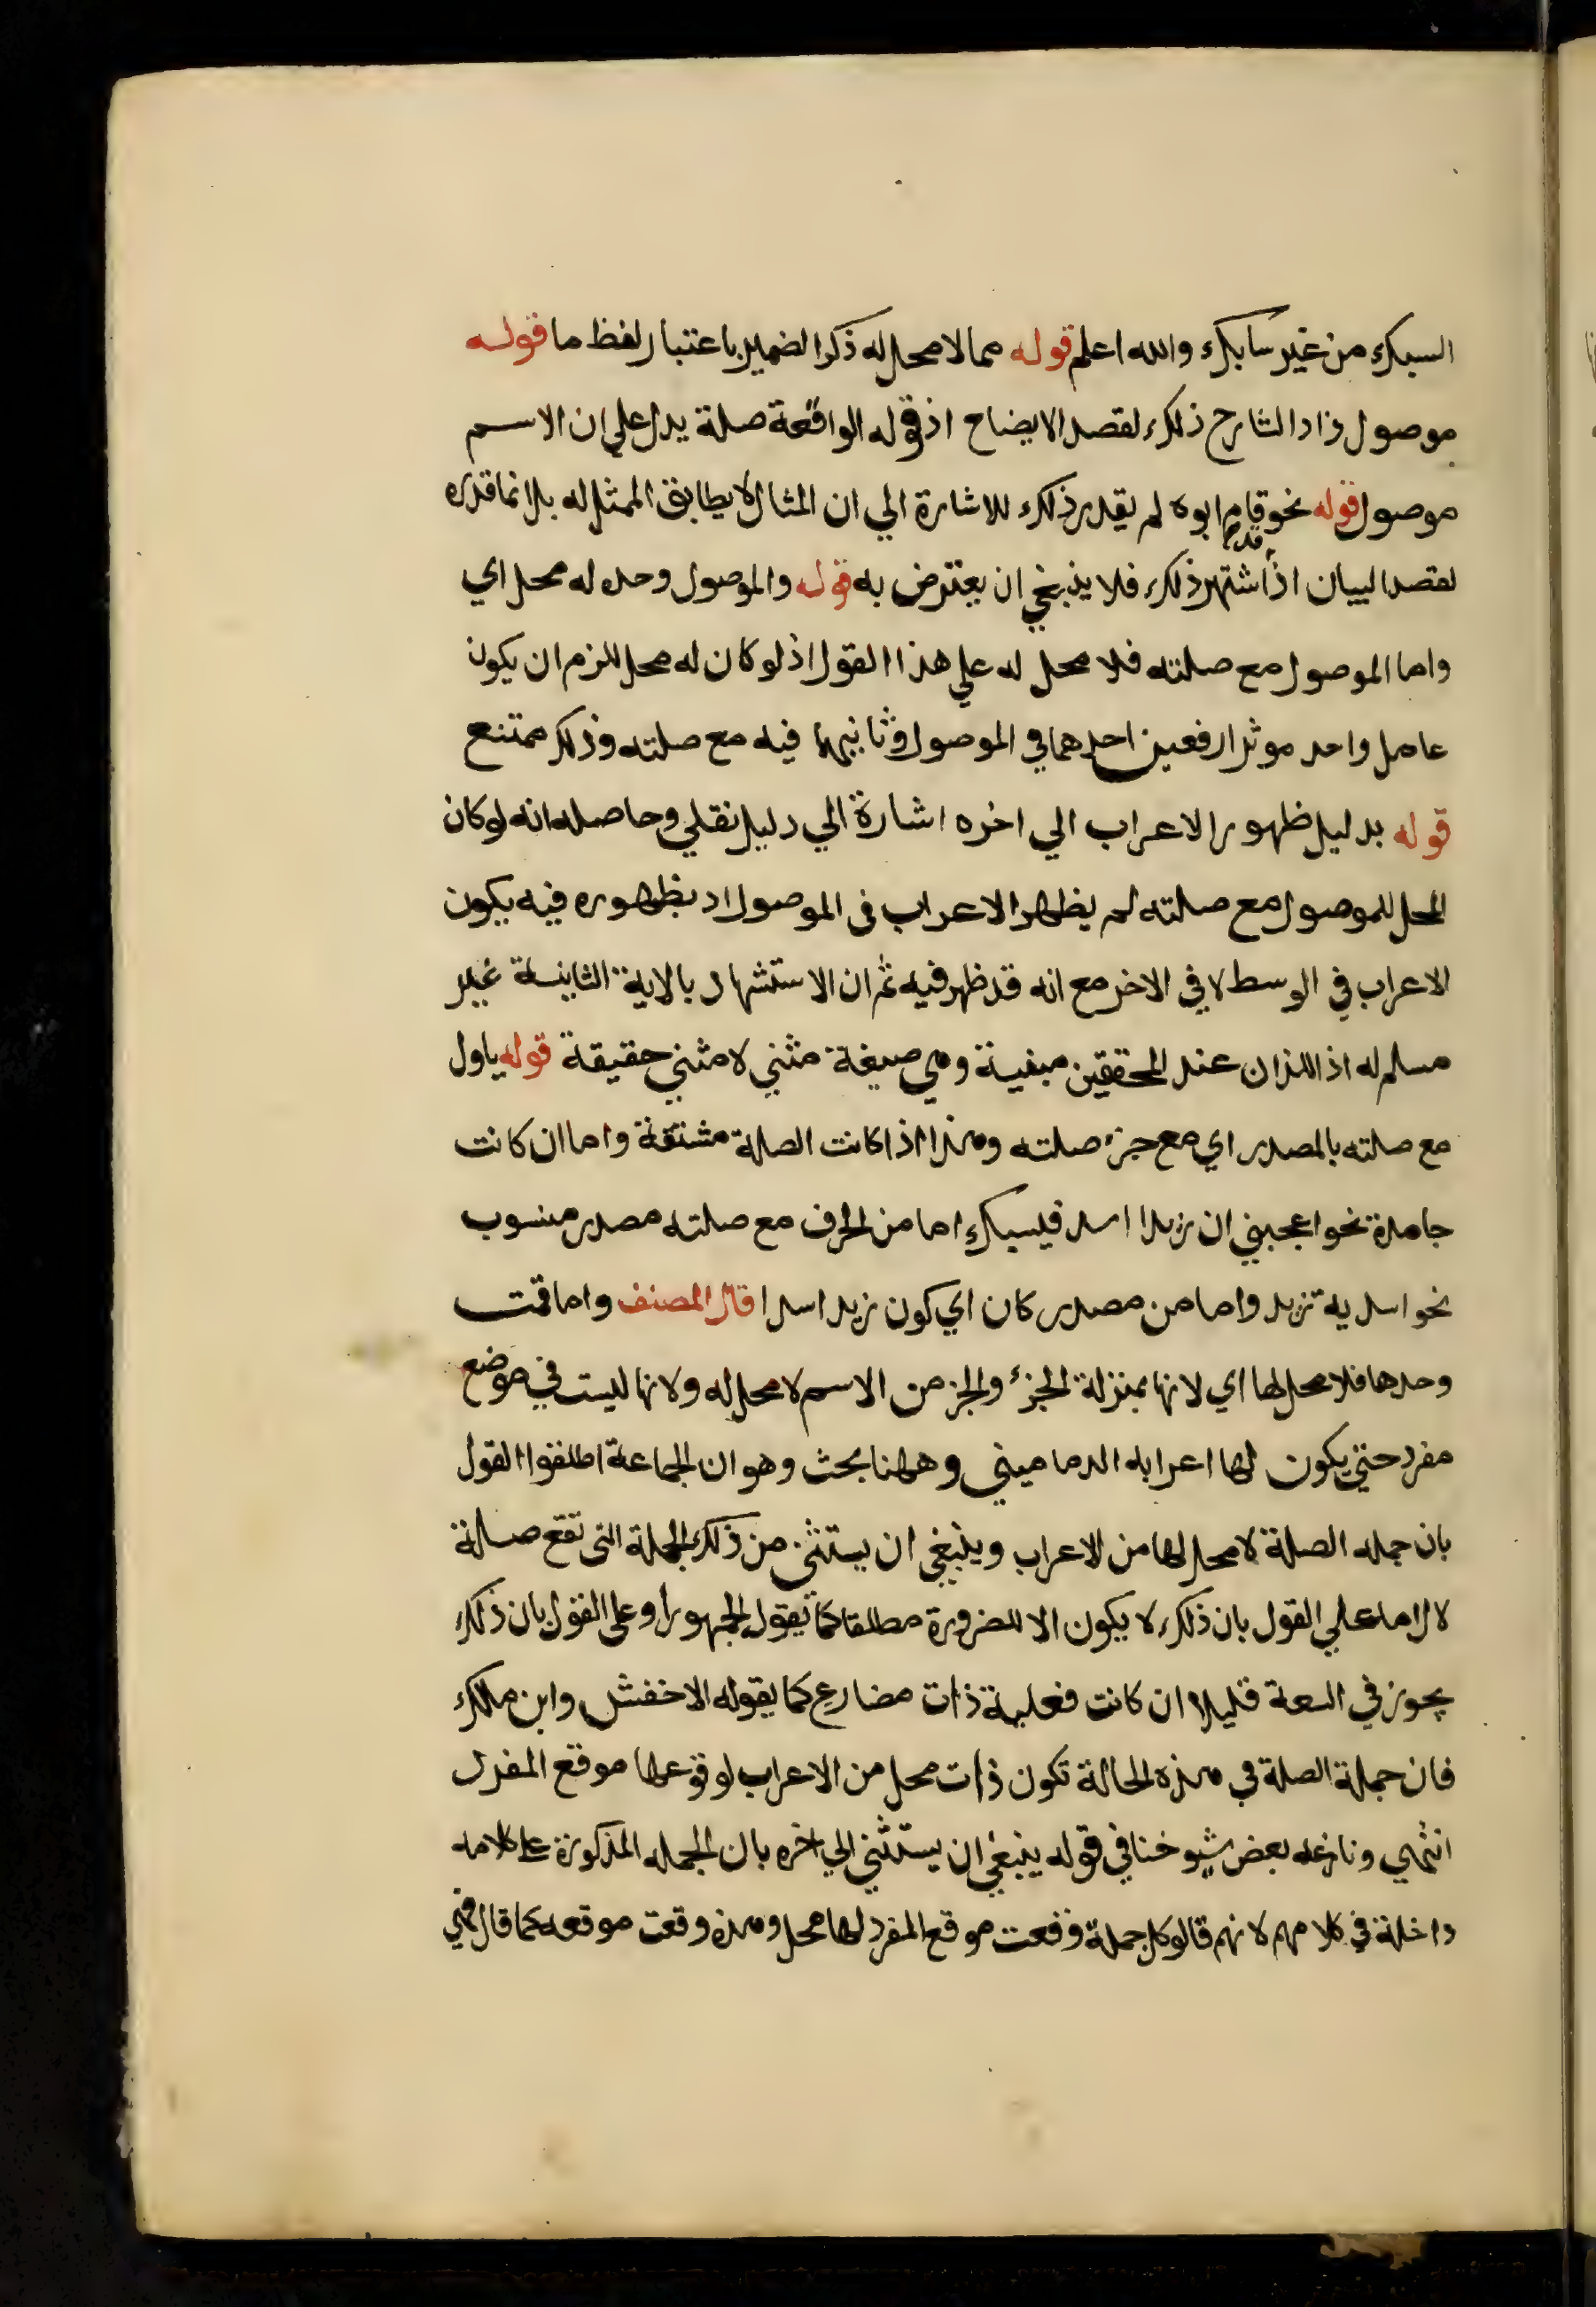 السبك من غير سابك والله اعلم قوله مما لا محل له ذكر الضمير باعتبار لفظ ما قوله
موصول زاد الشارح ذلك لقصد الايضاح اذ قوله الواقعة صلة يدل علي ان الاسم
موصول قوله نحو قام ابوه لم يقدر ذلك للاشارة الي ان المثال لا يطابق الممثل له بل انما قدره
لقصد البيان اذ قد اشتهر ذلك فلا ينبغي ان يعترض به قوله والموصول وحده له محل اي
واما الموصول مع صلته فلا محل له علي هذا القول اذ لو كان له محل للزم ان يكون
عامل واحد موثرا رفعين احدهما في الموصول وثانيهما فيه مع صلته وذلك ممتنع
قوله بدليل ظهور الاعراب الي اخره اشارة الي دليل نقلي وحاصله انه لو كان
المحل للموصول مع صلته لم يظهر الاعراب في الموصول اد بظهوره فيه يكون
الاعراب في الوسط لا في الاخر مع انه قد ظهر فيه ثم ان الاستشهاد بالاية الثانية غير
مسلم له اذ اللذان عند المحققين مبنية وهي صيغة مثني لا مثني حقيقة قوله ياول
مع صلته بالمصدر اي مع جزء صلته وهذا اذا كانت الصلة مشتقة واما ان كانت
جامدة نحو اعجبني ان زيدا اسد فيسبك اما من الحرف مع صلته مصدر منسوب
نحو اسدية زيد واما من مصدر كان اي كون زيد اسدا قال المصنف واما قمت
وحدها فلا محل لها اي لانها بمنزلة الجزء والجز من الاسم لا محل له ولانها ليست في موضع
مفرد حتي يكون لها اعرابه الدماميني وههنا بحث وهو ان الجماعة اطلقوا القول
بان جمله الصلة لا محل لها من الاعراب وينبغي ان يستثنى من ذلك الجملة التى تقع صلة
لال اما علي القول بان ذلك لا يكون الا للضرورة مطلقا كما تقول الجمهور او على القول بان ذلك
يجوز في السعة قليلا ان كانت فعلية ذات مضارع كما يقوله الاخفش وابن مالك
فان جملة الصلة في هذه الحالة تكون ذات محل من الاعراب لوقوعها موقع المفرد
انتهي ونازعه بعض شيوخنا في قوله ينبغي ان يستثني الي اخره بان الجمله المذكورة على كلامه
داخلة في كلامهم لانهم قالو كل جملة وقعت موقع المفرد لها محل وهذه وقعت موقعه كما قال فهي